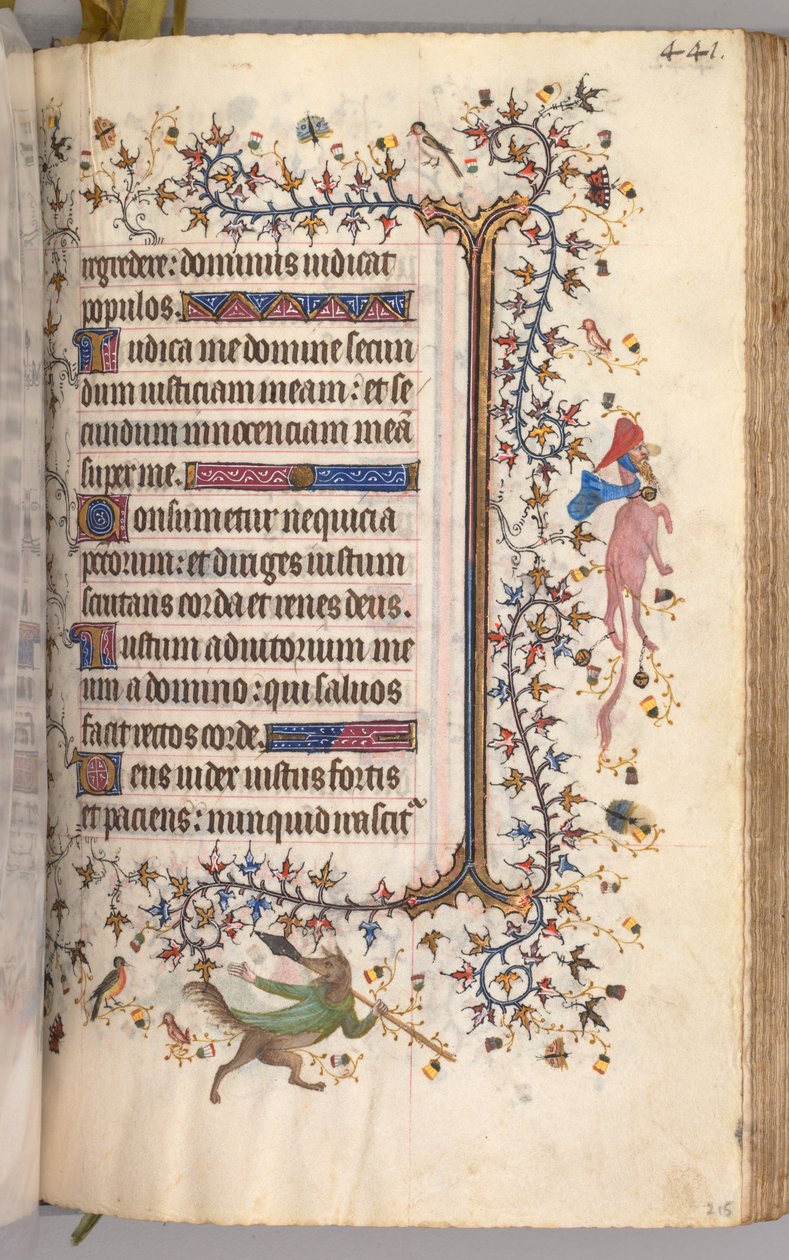 441.
regredere: dominus iudicat
populos.
Iudica me domine secun
dum iusticiam meam: et se
cundum innocenciam meā
super me.
Consumetur nequicia
peccorum: et diriges iustum
scrutans corda et renes deus.
Iustum adiutorium me
um a domino: qui saluos
facit rectos corde.
Deus iudex iustus fortis
et paciens: nunquid irascitᵃ
215